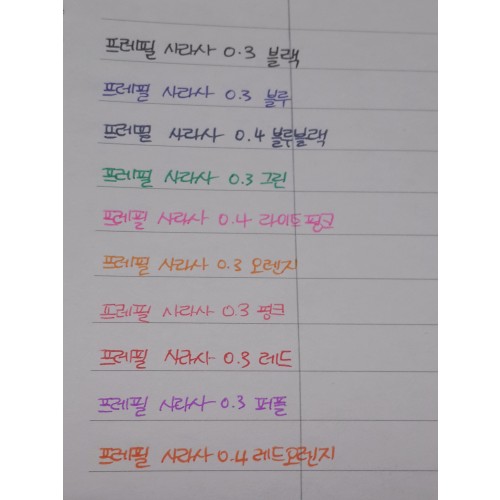 프레필 사라사 0.3 블랙
프레필 사라사 0.3 블루
프레필 사라사 0.4 블루블랙
프레필 사라사 0.3 그린
프레필 사라사 0.4 라이트핑크
프레필 사라사 0.3 오렌지
프레필 사라사 0.3 핑크
프레필 사라사 0.3 레드
프레필 사라사 0.3 퍼플
프레필 사라사 0.4 레드오렌지